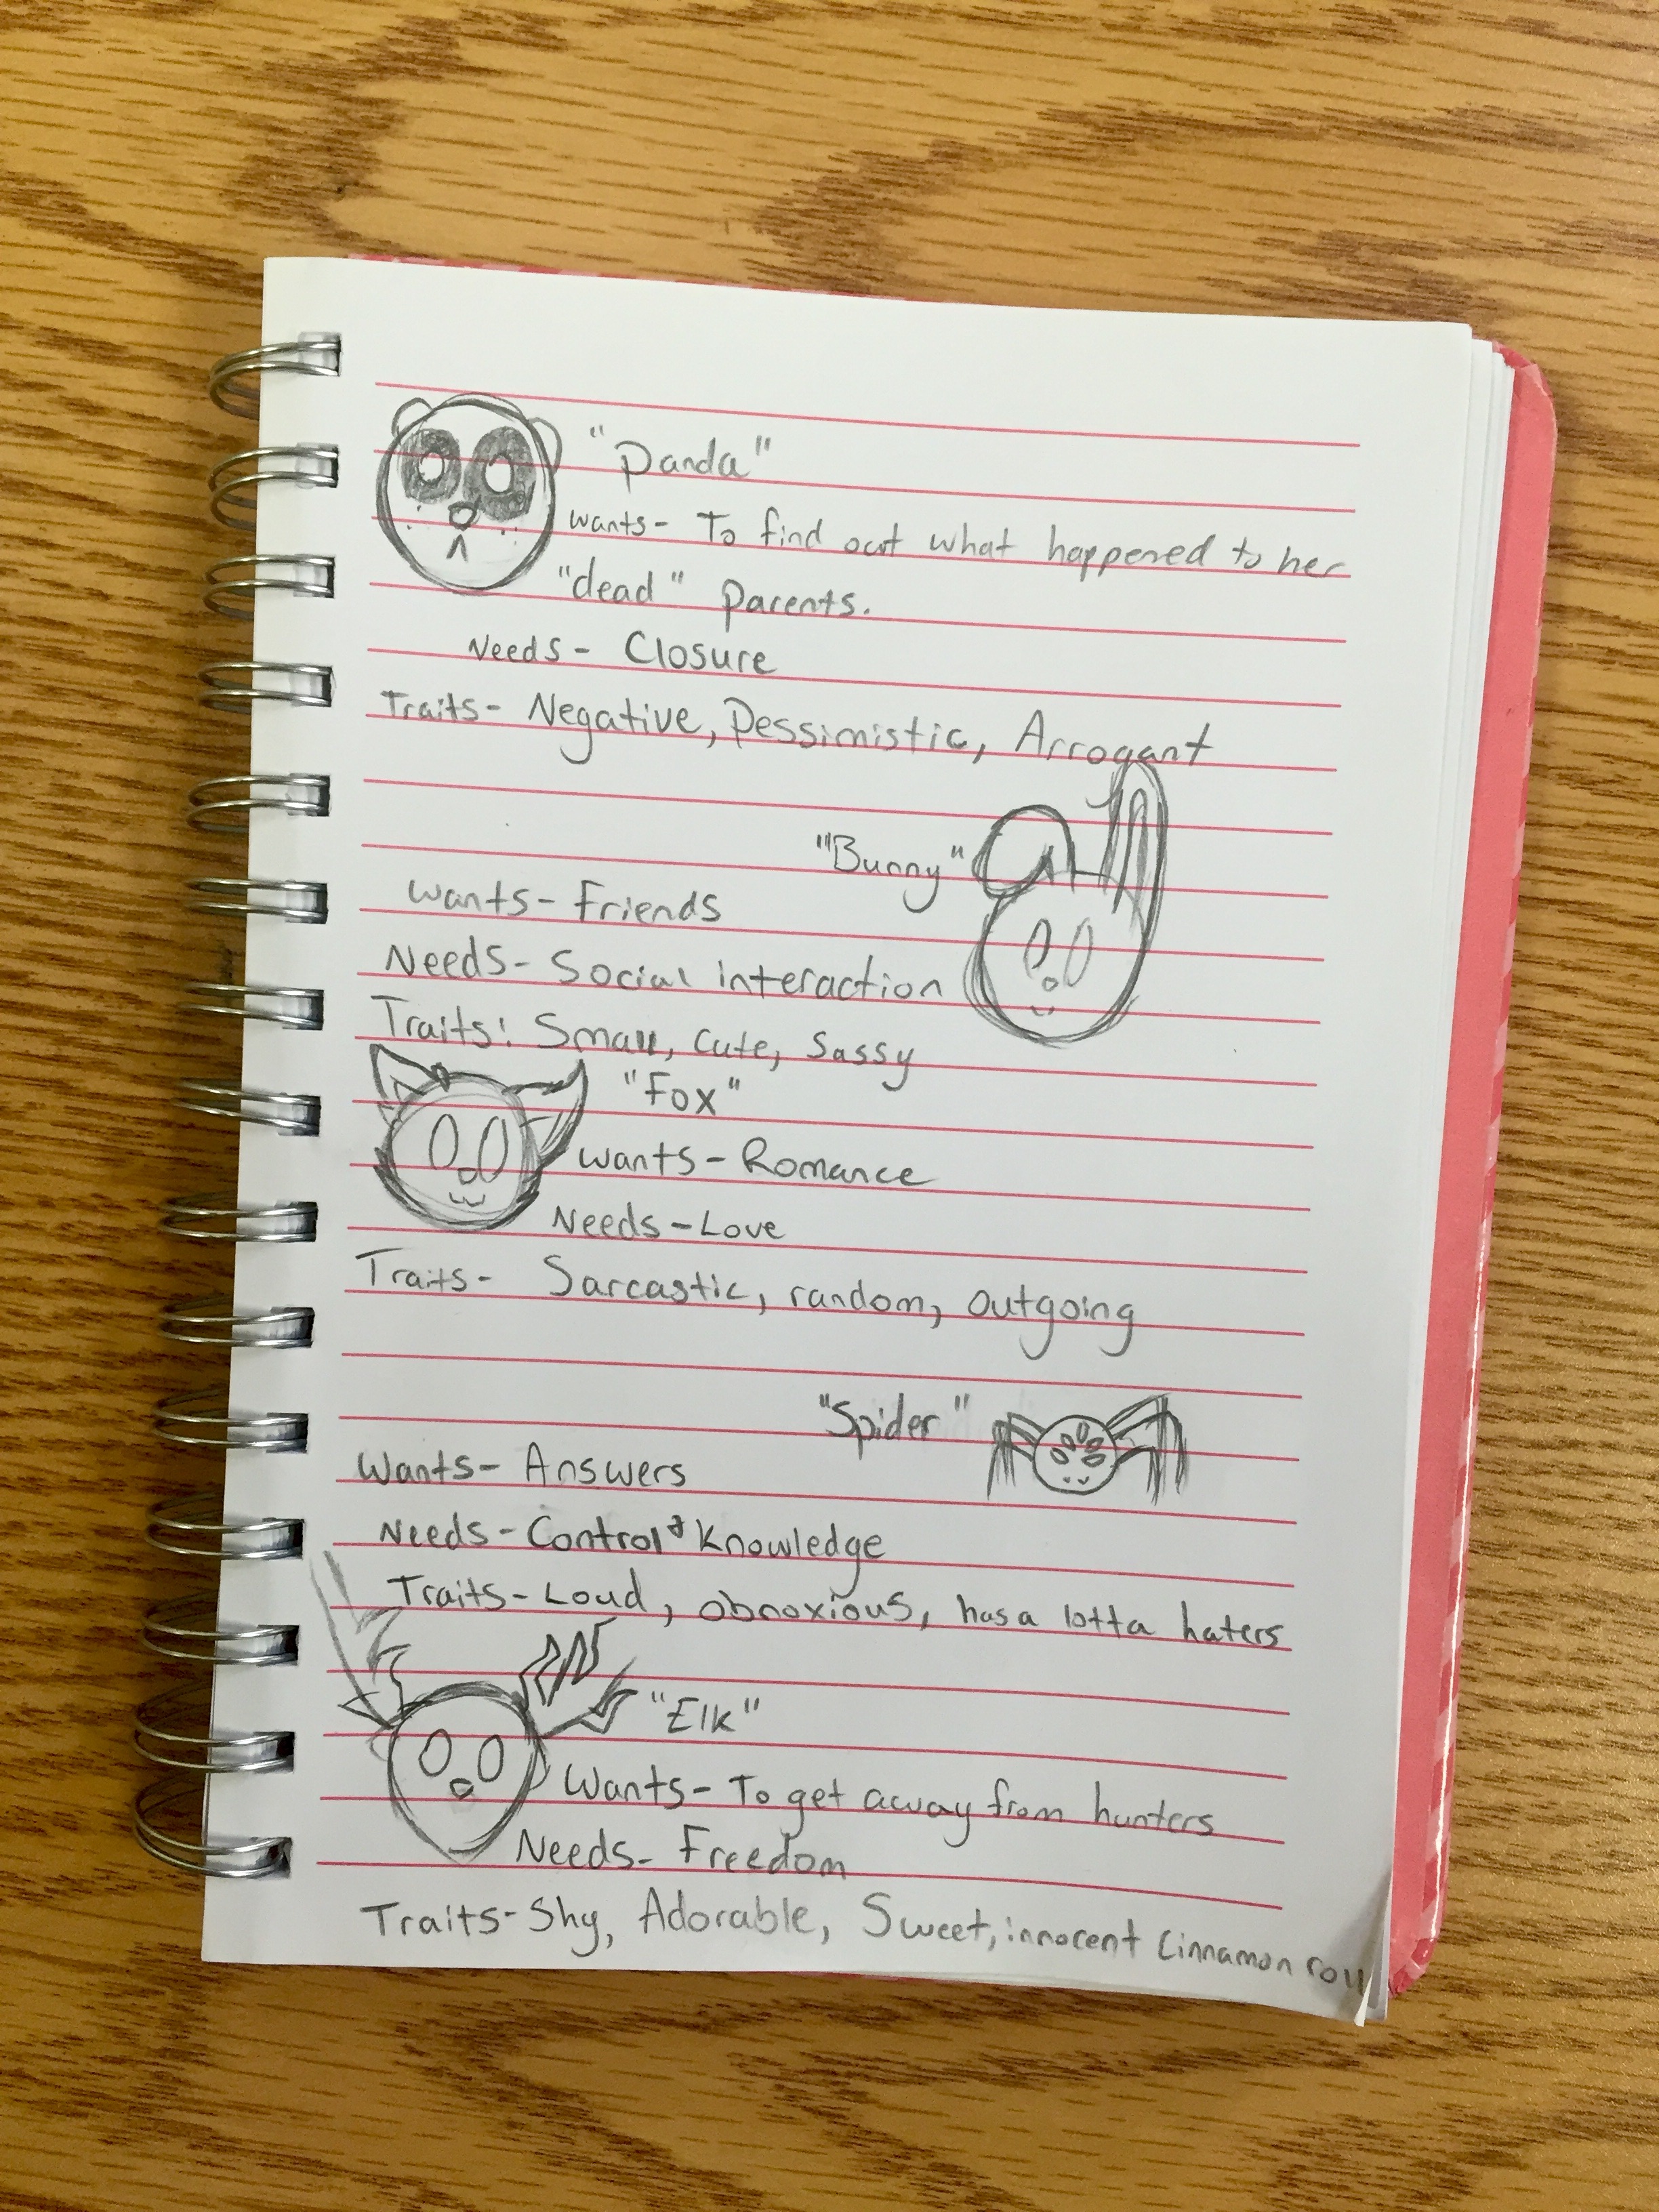 "Panda"
wants- To find out what happened to her
"dead" parents.
Needs- Closure
Traits- Negative, Pessimistic, Arrogant
"Bunny"
wants- Friends
Needs- Social interaction
Traits: Small, cute, sassy
"Fox"
wants- Romance
Needs- Love
Traits- Sarcastic, random, outgoing
"Spider"
Wants- Answers
Needs- Control & Knowledge
Traits- Loud, obnoxious, has a lotta haters
"Elk"
Wants- To get away from hunters
Needs- Freedom
Traits- Shy, Adorable, Sweet, innocent Cinnamon roll